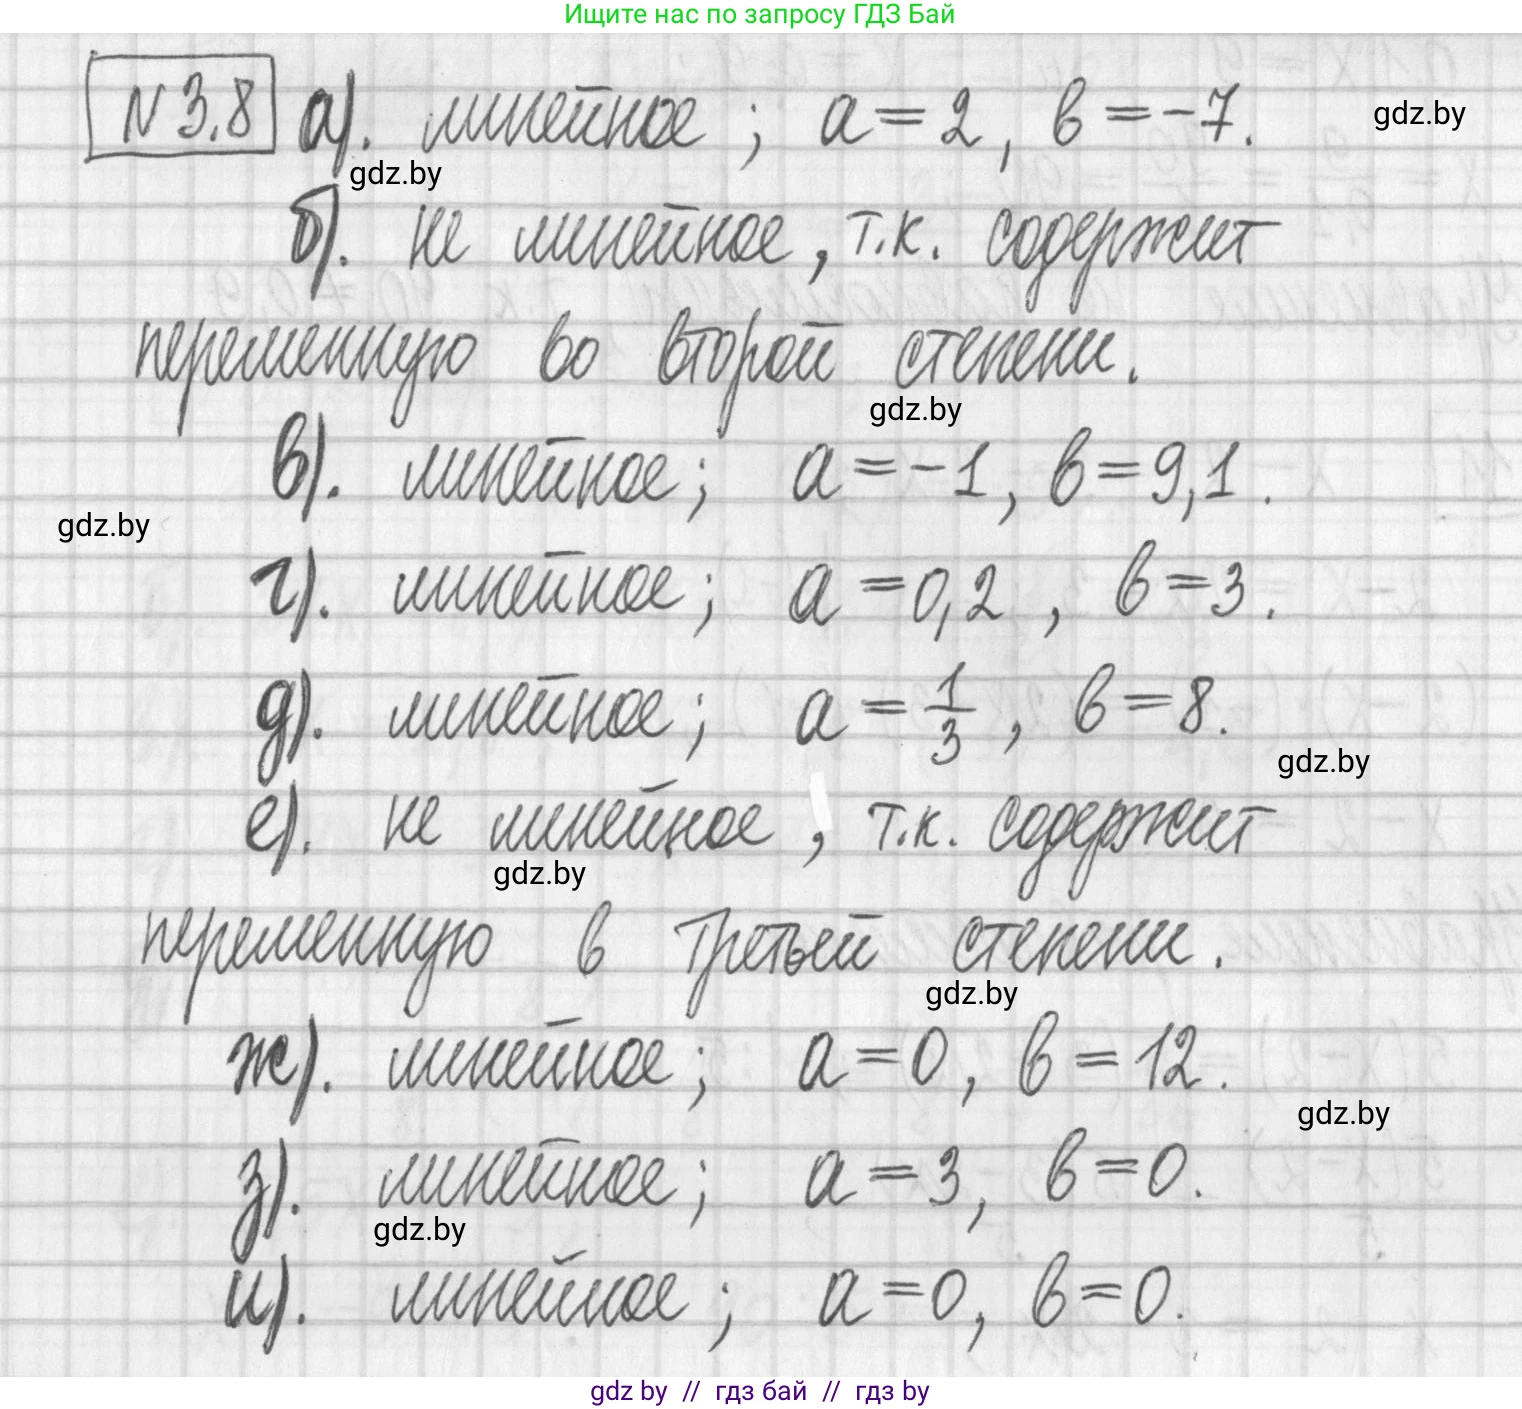 Ищите нас по запросу ГДЗ Бай
N 3.8 а). линейное ; a = 2 , в = -7. gdz.by
gdz.by
б). не линейное , т.к. содержит
переменную во второй степени.
gdz.by
в). линейное ; a = -1 , в = 9,1 .
gdz.by
г). линейное ; a = 0,2 , в = 3 .
д). линейное ; a = 1/3 , в = 8.
gdz.by
е). не линейное , т.к. содержит
gdz.by
переменную в третьей степени .
gdz.by
ж). линейное ; a = 0 , в = 12 .
gdz.by
з). линейное ; a = 3 , в = 0.
gdz.by
и). линейное ; a = 0 , в = 0.
gdz by // гдз бай // гдз by